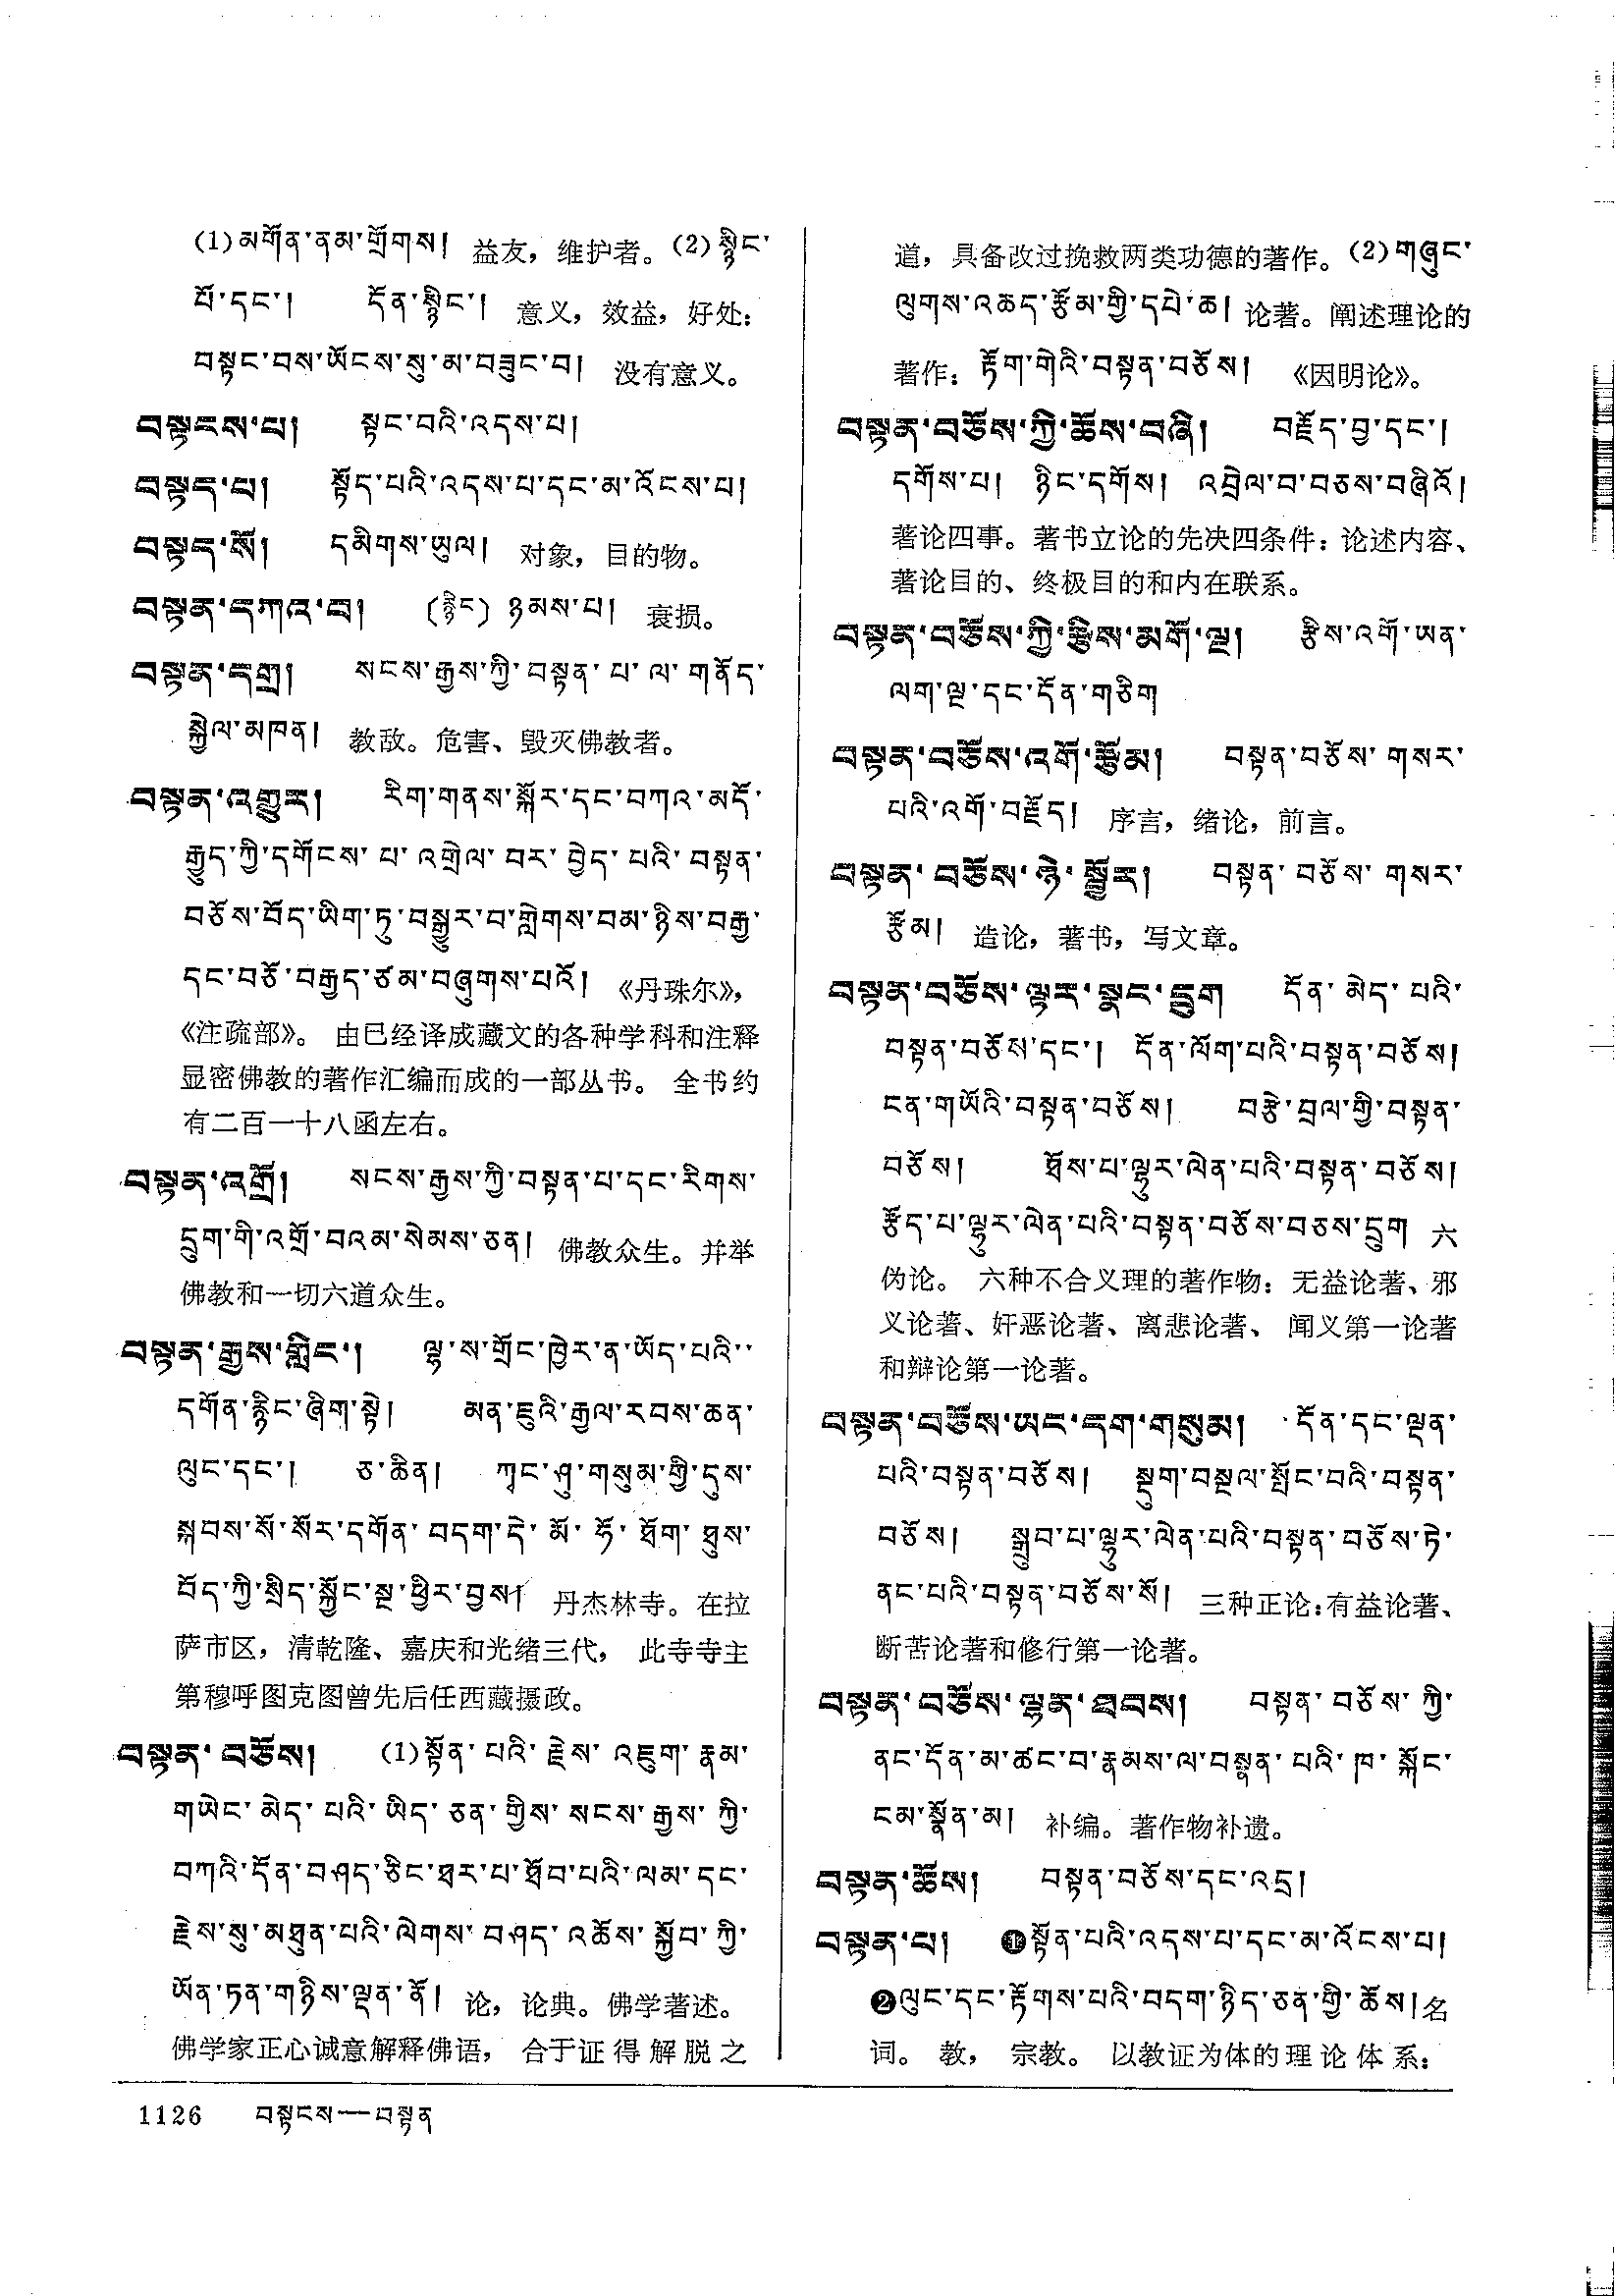 (1)མགོན་ནམ་གྲོགས། 益友，维护者。(2)སྙིང་
པོ་དང་། དོན་སྙིང་། 意义，效益，好处：
བསྟང་བས་ཡོངས་སུ་མ་བཟུང་བ། 没有意义。
བསྟངས་པ། སྟང་བའི་འདས་པ།
བསྟད་པ། སྟོད་པའི་འདས་པ་དང་མ་འོངས་པ།
བསྟད་སོ། དམིགས་ཡུལ། 对象，目的物。
བསྟན་དཀའ་བ། (རྙིང) ཉམས་པ། 衰损。
བསྟན་དགྲ། སངས་རྒྱས་ཀྱི་བསྟན་པ་ལ་གནོད་
སྐྱེལ་མཁན། 教敌。危害、毁灭佛教者。
བསྟན་འགྱུར། རིག་གནས་སྐོར་དང་བཀའ་མདོ་
རྒྱུད་ཀྱི་དགོངས་པ་འགྲེལ་བར་བྱེད་པའི་བསྟན་
བཅོས་བོད་ཡིག་ཏུ་བསྒྱུར་བ་གླེགས་བམ་ཉིས་བརྒྱ་
དང་བཅོ་བརྒྱད་ཙམ་བཞུགས་པའོ། 《丹珠尔》，
《注疏部》。 由已经译成藏文的各种学科和注释
显密佛教的著作汇编而成的一部丛书。 全书约
有二百一十八函左右。
བསྟན་འགྲོ། སངས་རྒྱས་ཀྱི་བསྟན་པ་དང་རིགས་
དྲུག་གི་འགྲོ་བའམ་སེམས་ཅན། 佛教众生。并举
佛教和一切六道众生。
བསྟན་རྒྱས་གླིང་། ལྷ་ས་གྲོང་ཁྱེར་ན་ཡོད་པའི་་
དགོན་རྙིང་ཞིག་སྟེ། མན་ཇུའི་རྒྱལ་རབས་ཆན་
ལུང་དང་། ཅ་ཆིན། ཀྭང་ཤུ་གསུམ་གྱི་དུས་
སྐབས་སོ་སོར་དགོན་བདག་དེ་མོ་ཧོ་ཐོག་ཐུས་
བོད་ཀྱི་སྲིད་སྐྱོང་སྔ་ཕྱིར་བྱས། 丹杰林寺。在拉
萨市区，清乾隆、嘉庆和光绪三代， 此寺寺主
第穆呼图克图曾先后任西藏摄政。
བསྟན་བཅོས། (1)སྟོན་པའི་རྗེས་འཇུག་རྣམ་
གཡེང་མེད་པའི་ཡིད་ཅན་གྱིས་སངས་རྒྱས་ཀྱི་
བཀའི་དོན་བཤད་ཅིང་ཐར་པ་ཐོབ་པའི་ལམ་དང་
རྗེས་སུ་མཐུན་པའི་ལེགས་བཤད་འཆོས་སྐྱོབ་ཀྱི་
ཡོན་ཏན་གཉིས་ལྡན་ནོ། 论，论典。佛学著述。
佛学家正心诚意解释佛语， 合于证得解脱之
道，具备改过挽救两类功德的著作。(2)གཞུང་
ལུགས་འཆད་རྩོམ་གྱི་དཔེ་ཆ། 论著。阐述理论的
著作：རྟོག་གེའི་བསྟན་བཅོས། 《因明论》。
བསྟན་བཅོས་ཀྱི་ཆོས་བཞི། བརྗོད་བྱ་དང་།
དགོས་པ། ཉིང་དགོས། འབྲེལ་བ་བཅས་བཞིའོ།
著论四事。著书立论的先决四条件：论述内容、
著论目的、终极目的和内在联系。
བསྟན་བཅོས་ཀྱི་རྩིས་མགོ་ལྔ། རྩིས་འགོ་ཡན་
ལག་ལྔ་དང་དོན་གཅིག
བསྟན་བཅོས་འགོ་རྩོམ། བསྟན་བཅོས་གསར་
པའི་འགོ་བརྗོད། 序言，绪论，前言。
བསྟན་བཅོས་ཉེ་སྦྱོར། བསྟན་བཅོས་གསར་
རྩོམ། 造论，著书，写文章。
བསྟན་བཅོས་ལྟར་སྣང་དྲུག དོན་མེད་པའི་
བསྟན་བཅོས་དང་། དོན་ལོག་པའི་བསྟན་བཅོས།
ངན་གཡོའི་བསྟན་བཅོས། བརྩེ་བྲལ་གྱི་བསྟན་
བཅོས། ཐོས་པ་ལྷུར་ལེན་པའི་བསྟན་བཅོས།
རྩོད་པ་ལྷུར་ལེན་པའི་བསྟན་བཅོས་བཅས་དྲུག 六
伪论。 六种不合义理的著作物：无益论著、邪
义论著、奸恶论著、离悲论著、 闻义第一论著
和辩论第一论著。
བསྟན་བཅོས་ཡང་དག་གསུམ། དོན་དང་ལྡན་
པའི་བསྟན་བཅོས། སྡུག་བསྔལ་སྤོང་བའི་བསྟན་
བཅོས། སྒྲུབ་པ་ལྷུར་ལེན་པའི་བསྟན་བཅོས་ཏེ་
ནང་པའི་བསྟན་བཅོས་སོ། 三种正论：有益论著、
断苦论著和修行第一论著。
བསྟན་བཅོས་ལྷན་ཐབས། བསྟན་བཅོས་ཀྱི་
ནང་དོན་མ་ཚང་བ་རྣམས་ལ་བསྣན་པའི་ཁ་སྐོང་
ངམ་སྣོན་མ། 补编。著作物补遗。
བསྟན་ཆོས། བསྟན་བཅོས་དང་འདྲ།
བསྟན་པ། ❶སྟོན་པའི་འདས་པ་དང་མ་འོངས་པ།
❷ལུང་དང་རྟོགས་པའི་བདག་ཉིད་ཅན་གྱི་ཆོས།名
词。 教， 宗教。 以教证为体的理论体系：
1126 བསྟངས—བསྟན